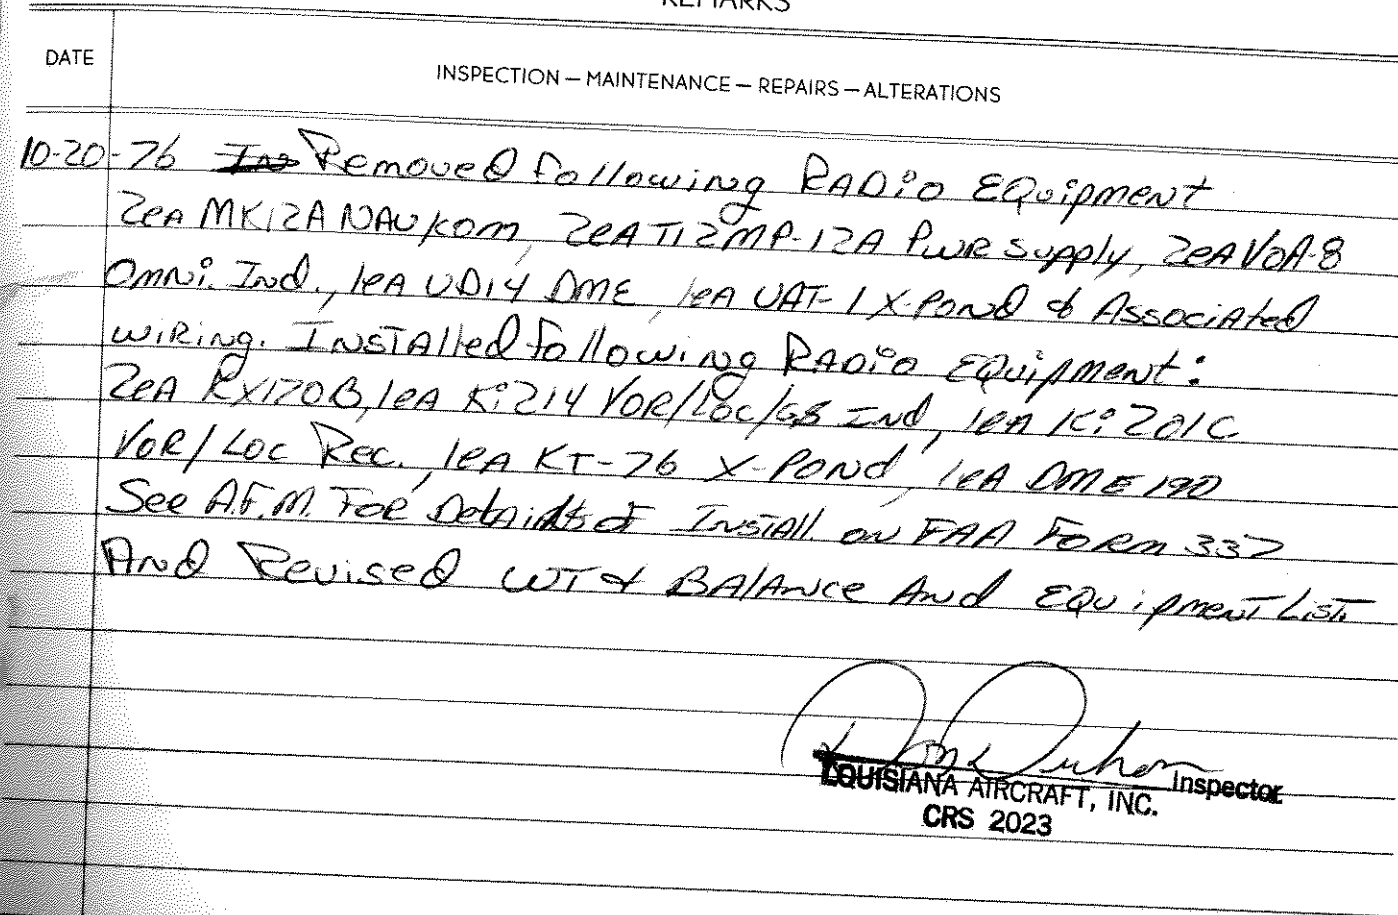 REMARKS
DATE
INSPECTION — MAINTENANCE — REPAIRS — ALTERATIONS
10-20-76 Removed following RADio EQuipment
2eA MK12A NAV/Kom, 2eA T12MP-12A PWR Supply, 2eA VOA-8
Omni. Ind., 1eA UDI4 DME, 1eA UAT-1 X-Pond & AssociAted
wiRing. INSTAlled following RADio EQuipment:
2eA RX170B, 1eA Ki214 VOR/Loc/GS Ind, 1eA Ki201C
VOR/Loc Rec., 1eA KT-76 X-Pond, 1eA DME 190
See A.F.M. FoR Details of INSTAll. on FAA FoRm 337
And Revised WT & BAlAnce And EQuipmenT LisT.
Inspector
LOUISIANA AIRCRAFT, INC.
CRS 2023